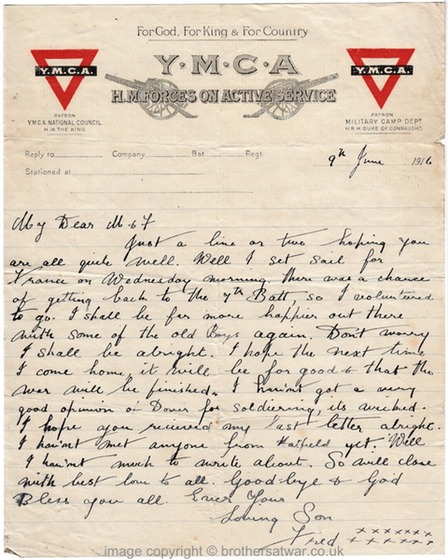 For God, For King & For Country
Y·M·C·A
H.M. FORCES ON ACTIVE SERVICE
Y.M.C.A.
PATRON
YMCA NATIONAL COUNCIL
H.M. THE KING
Y.M.C.A.
PATRON
MILITARY CAMP DEPT
H.R.H. DUKE OF CONNAUGHT.
Reply to Company Bat Regt.
9th June 1916
Stationed at
My Dear M & F
Just a line or two hoping you
are all quite well. Well I set sail for
France on Wednesday morning, there was a chance
of getting back to the 7th Batt, so I volunteered
to go. I shall be far more happier out there
with some of the old Boys again. Don't worry
I shall be alright. I hope the next time
I come home, it will be for good & that the
war will be finished. I hav'nt got a very
good opinion of Dover for soldiering, its wicked.
I hope you received my last letter alright.
I hav'nt met anyone from Hatfield yet. Well
I hav'nt much to write about. So will close
with best love to all. Good-bye & God
Bless you all. Ever Your
Loving Son
Fred xxxxxx
xxxxxx
image copyright © brothersatwar.co.uk